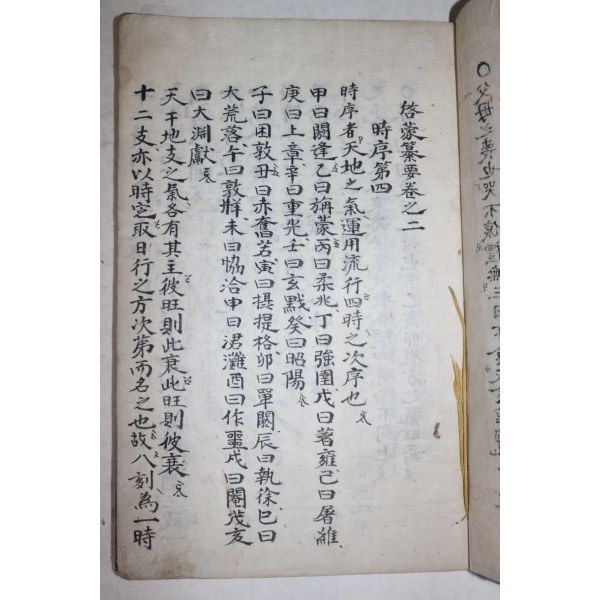 啓蒙纂要卷之二
時序第四
時序者天地之氣運用流行四時之次序也
甲曰閼逢乙曰旃蒙丙曰柔兆丁曰強圉戊曰著雍己曰屠維
庚曰上章辛曰重光壬曰玄黓癸曰昭陽
子曰困敦丑曰赤奮若寅曰攝提格卯曰單閼辰曰執徐巳曰
大荒落午曰敦牂未曰協洽申曰涒灘酉曰作噩戌曰閹茂亥
曰大淵獻
天干地支之氣各有其主彼旺則此衰此旺則彼衰
十二支亦以時定取日行之方次第而名之也故八刻為一時
○父母之喪也哭不